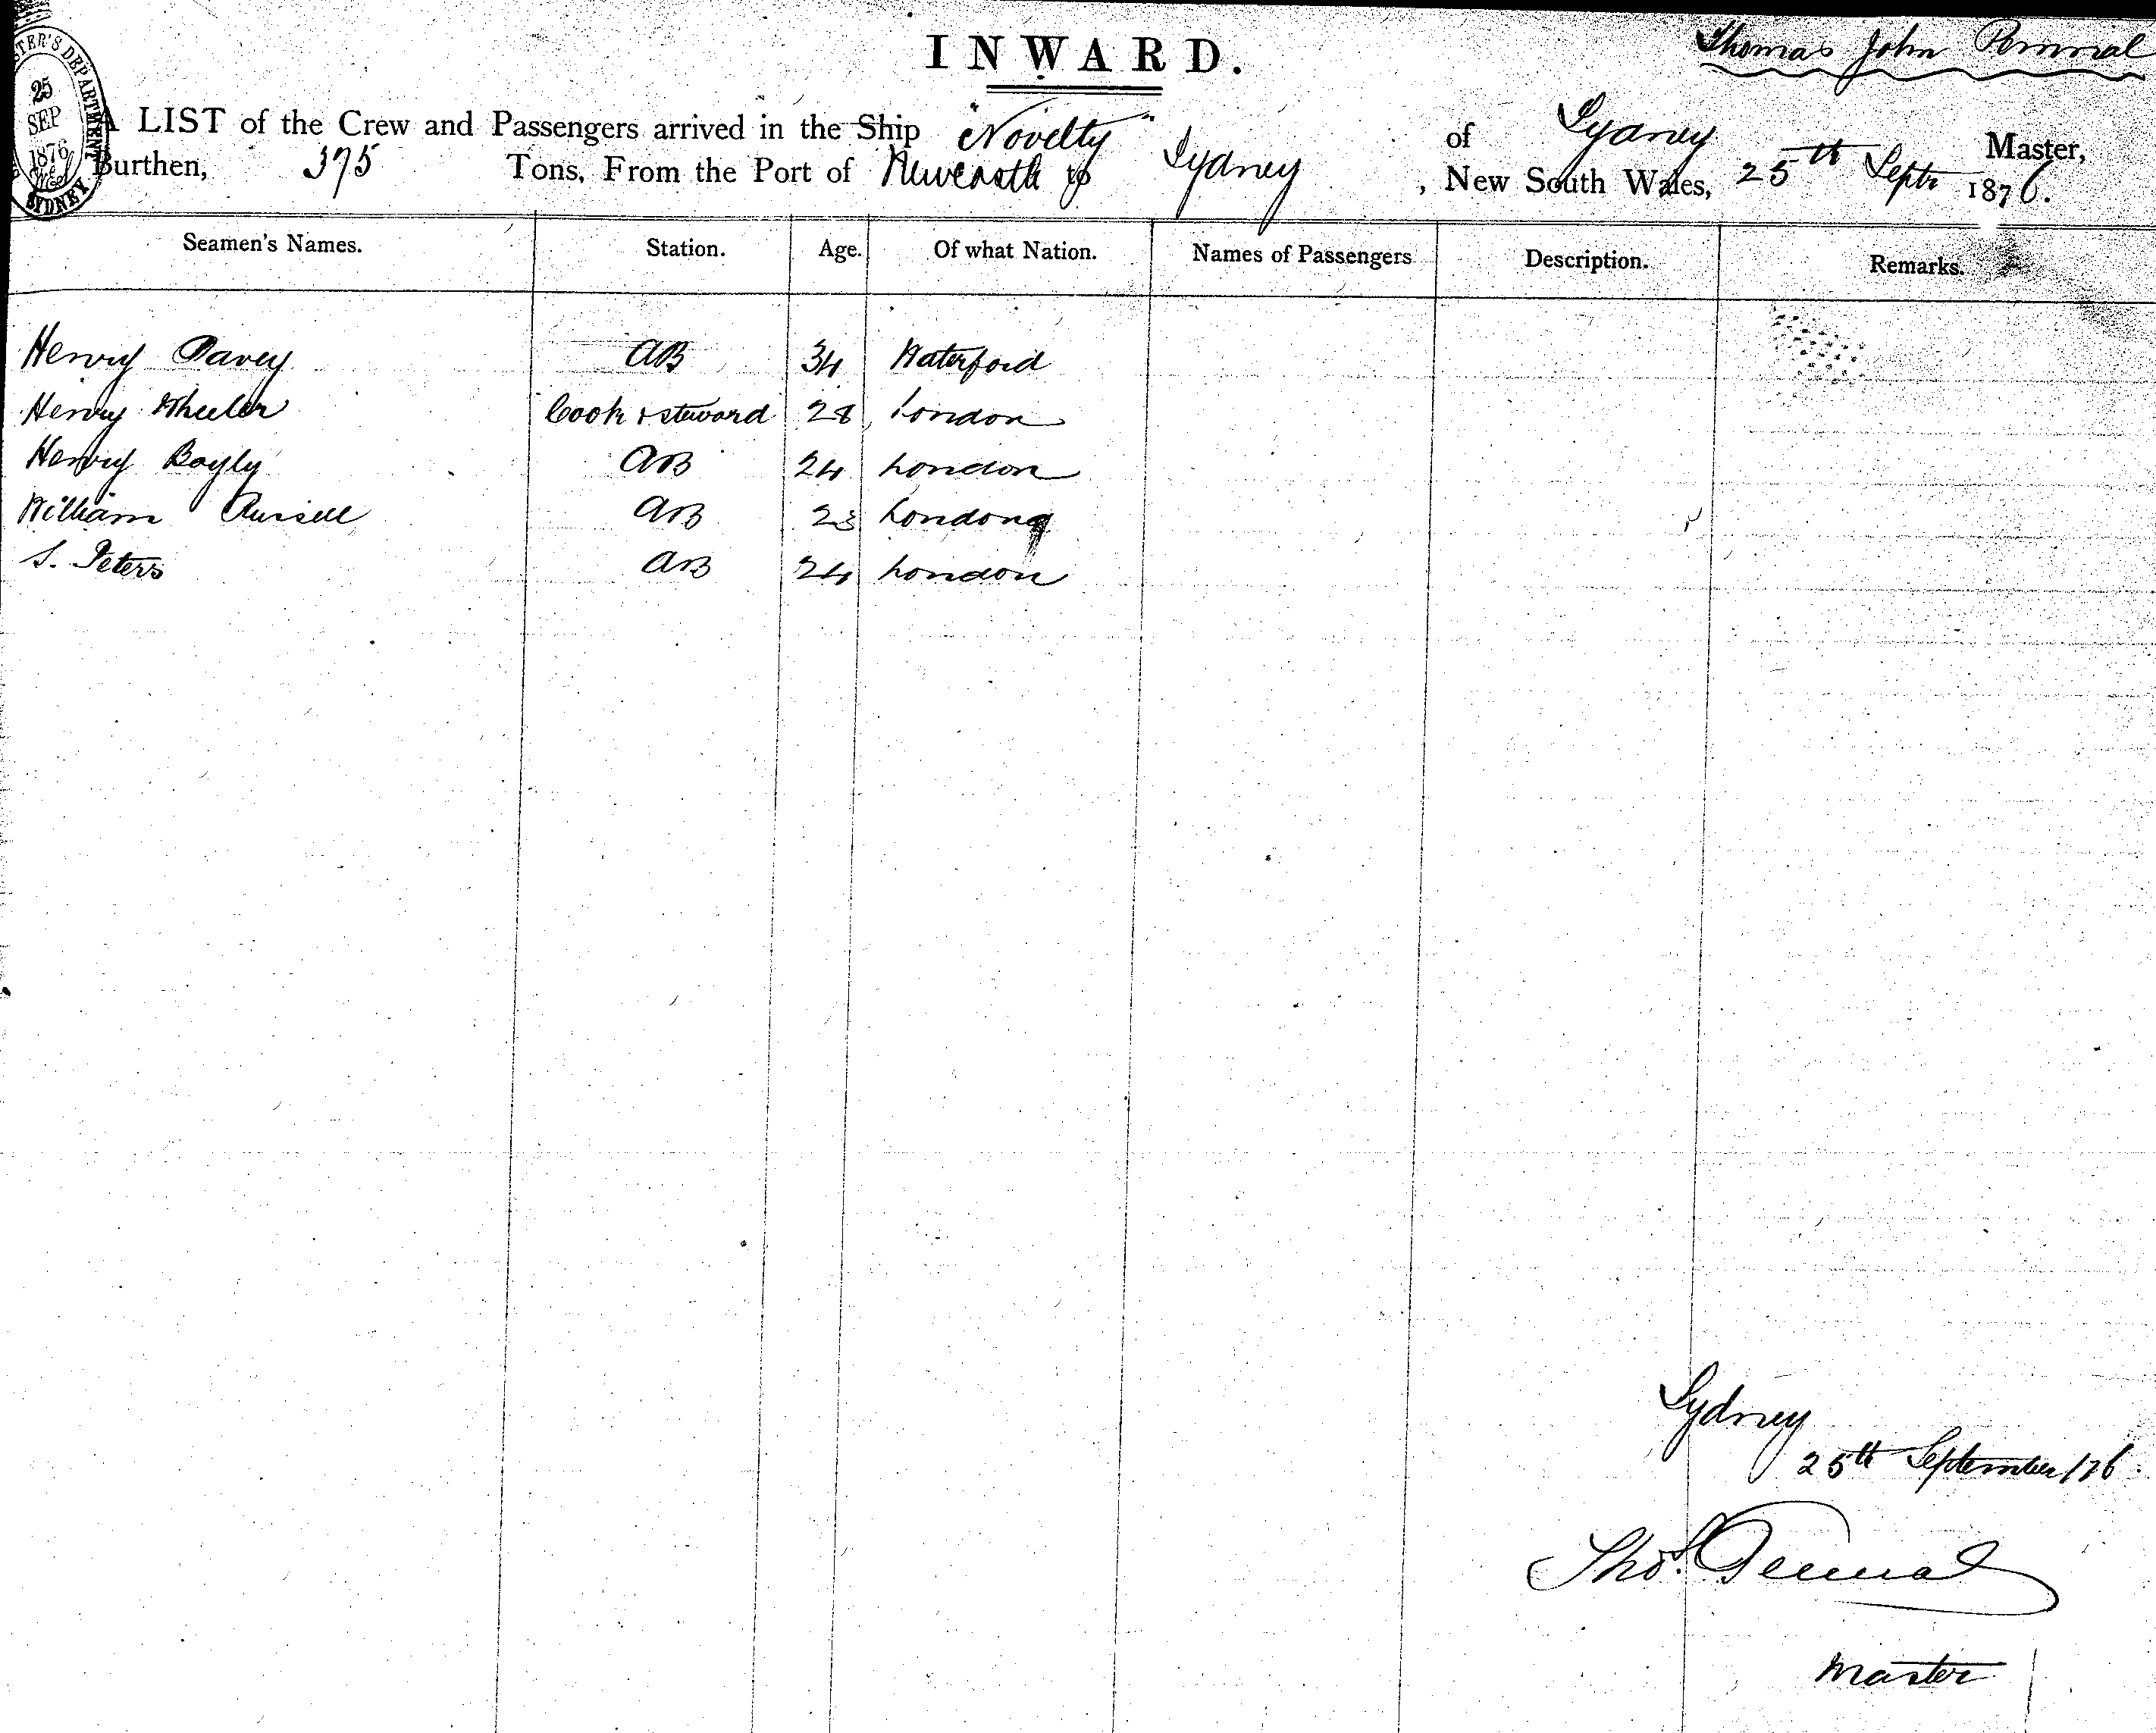 INWARD.
Thomas John
25
SEP
1876
SYDNEY
A LIST of the Crew and Passengers arrived in the Ship "Novelty" of Sydney Master,
Burthen, 375 Tons, From the Port of Newcastle to Sydney, New South Wales, 25th Septr 1876.
Seamen's Names. Station. Age. Of what Nation. Names of Passengers Description. Remarks.
Henry Davey AB 34 Waterford
Henry Wheeler Cook & steward 28 London
Henry Bayly AB 24 London
William Russell AB 23 London
S. Peters AB 24 London
Sydney
25th September/76
Thos.
Master